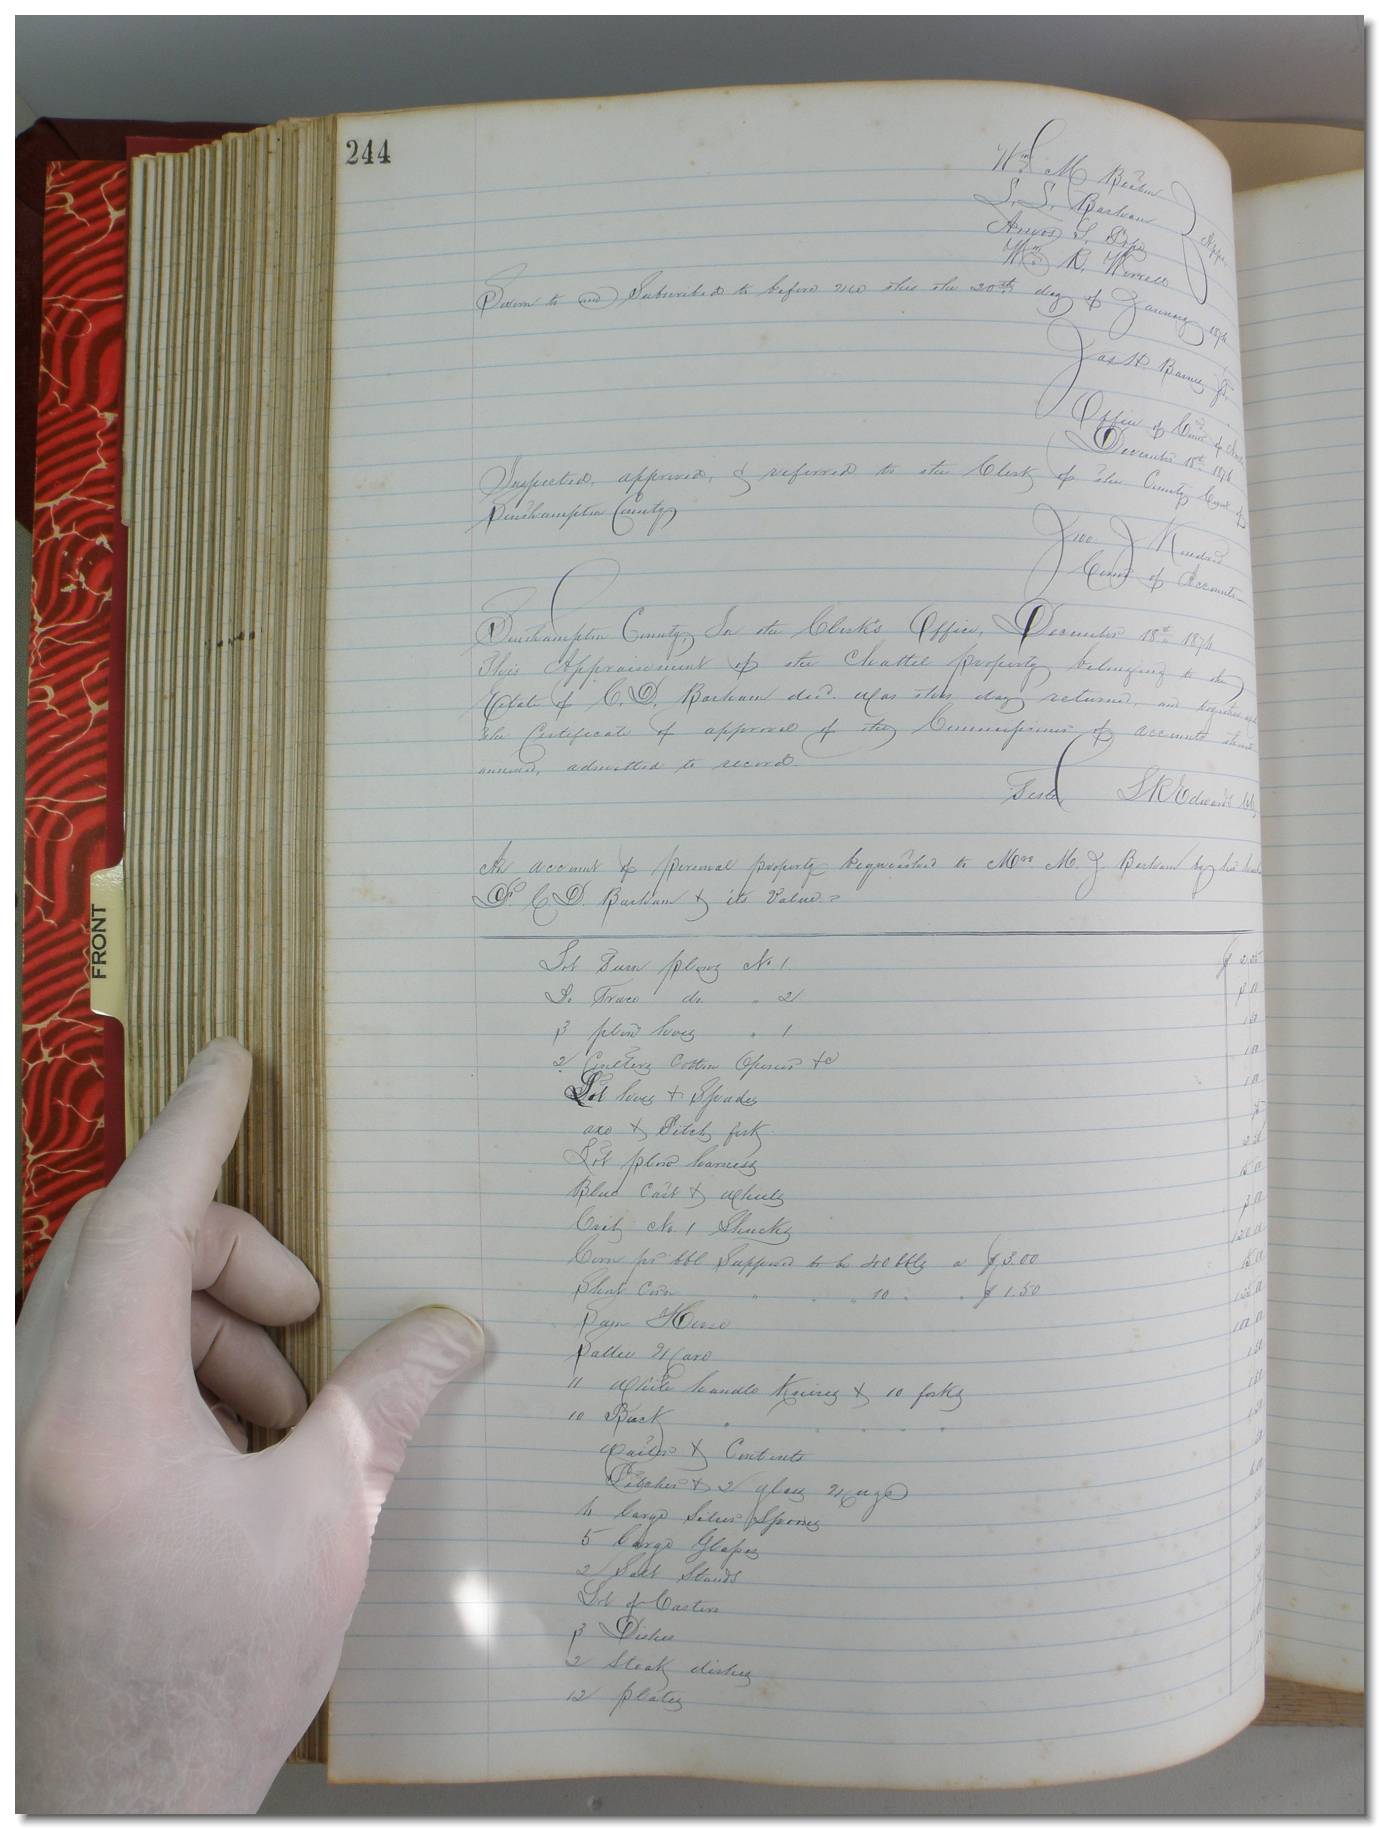 244
Wm. M Barham
S. S. Barham
Amos G. Pope
Wm. R. Worrell
Appr.
Sworn to and Subscribed to before me this the 20th day of January 1874
Jas H. Barnes J.P.
Office of Comr. of
December 18th 1874
Inspected, approved, & referred to the Clerk of the County Court of
Southampton County
Jno. J Kindred
Comr of Accounts
Southampton County, In the Clerk's Office, December 18th 1874
This Appraisement of the chattel property belonging to the
Estate of C. D. Barham decd. was this day returned, and together with
the Certificate of approval of the Commissioner of accounts thereto
annexed, admitted to record.
Teste, L R Edwards Clk
An account of personal property bequeathed to Mrs M. J. Barham by
Dr. C. D. Barham & its Value.
Lot Turn plows No 1. $ 2.25
Do Trace do. " 2 3 00
3 plow hoes " 1 1 50
2 Coulters Cotton Opener &c 1 00
Lot hoes & Spades 1 00
axe & Pitch fork
Lot plow harness 2 50
Blue Cart & Wheels 15 00
Crib No 1 Shucks 3 00
Corn pr bbl Supposed to be 40 bbls a $3.00 120 00
Short Corn " " " 10 " " $1.50 15 00
Horse
Mare 100 00
11 White handle Knives & 10 forks 1 50
10 Buck " " " " "
Waiter & Contents
Pitcher & 2 glass Mugs
4 large Silver Spoons
5 large Glasses
2 Salt Stands
Set of Castors
3 Dishes
2 Steak dishes
12 plates
FRONT